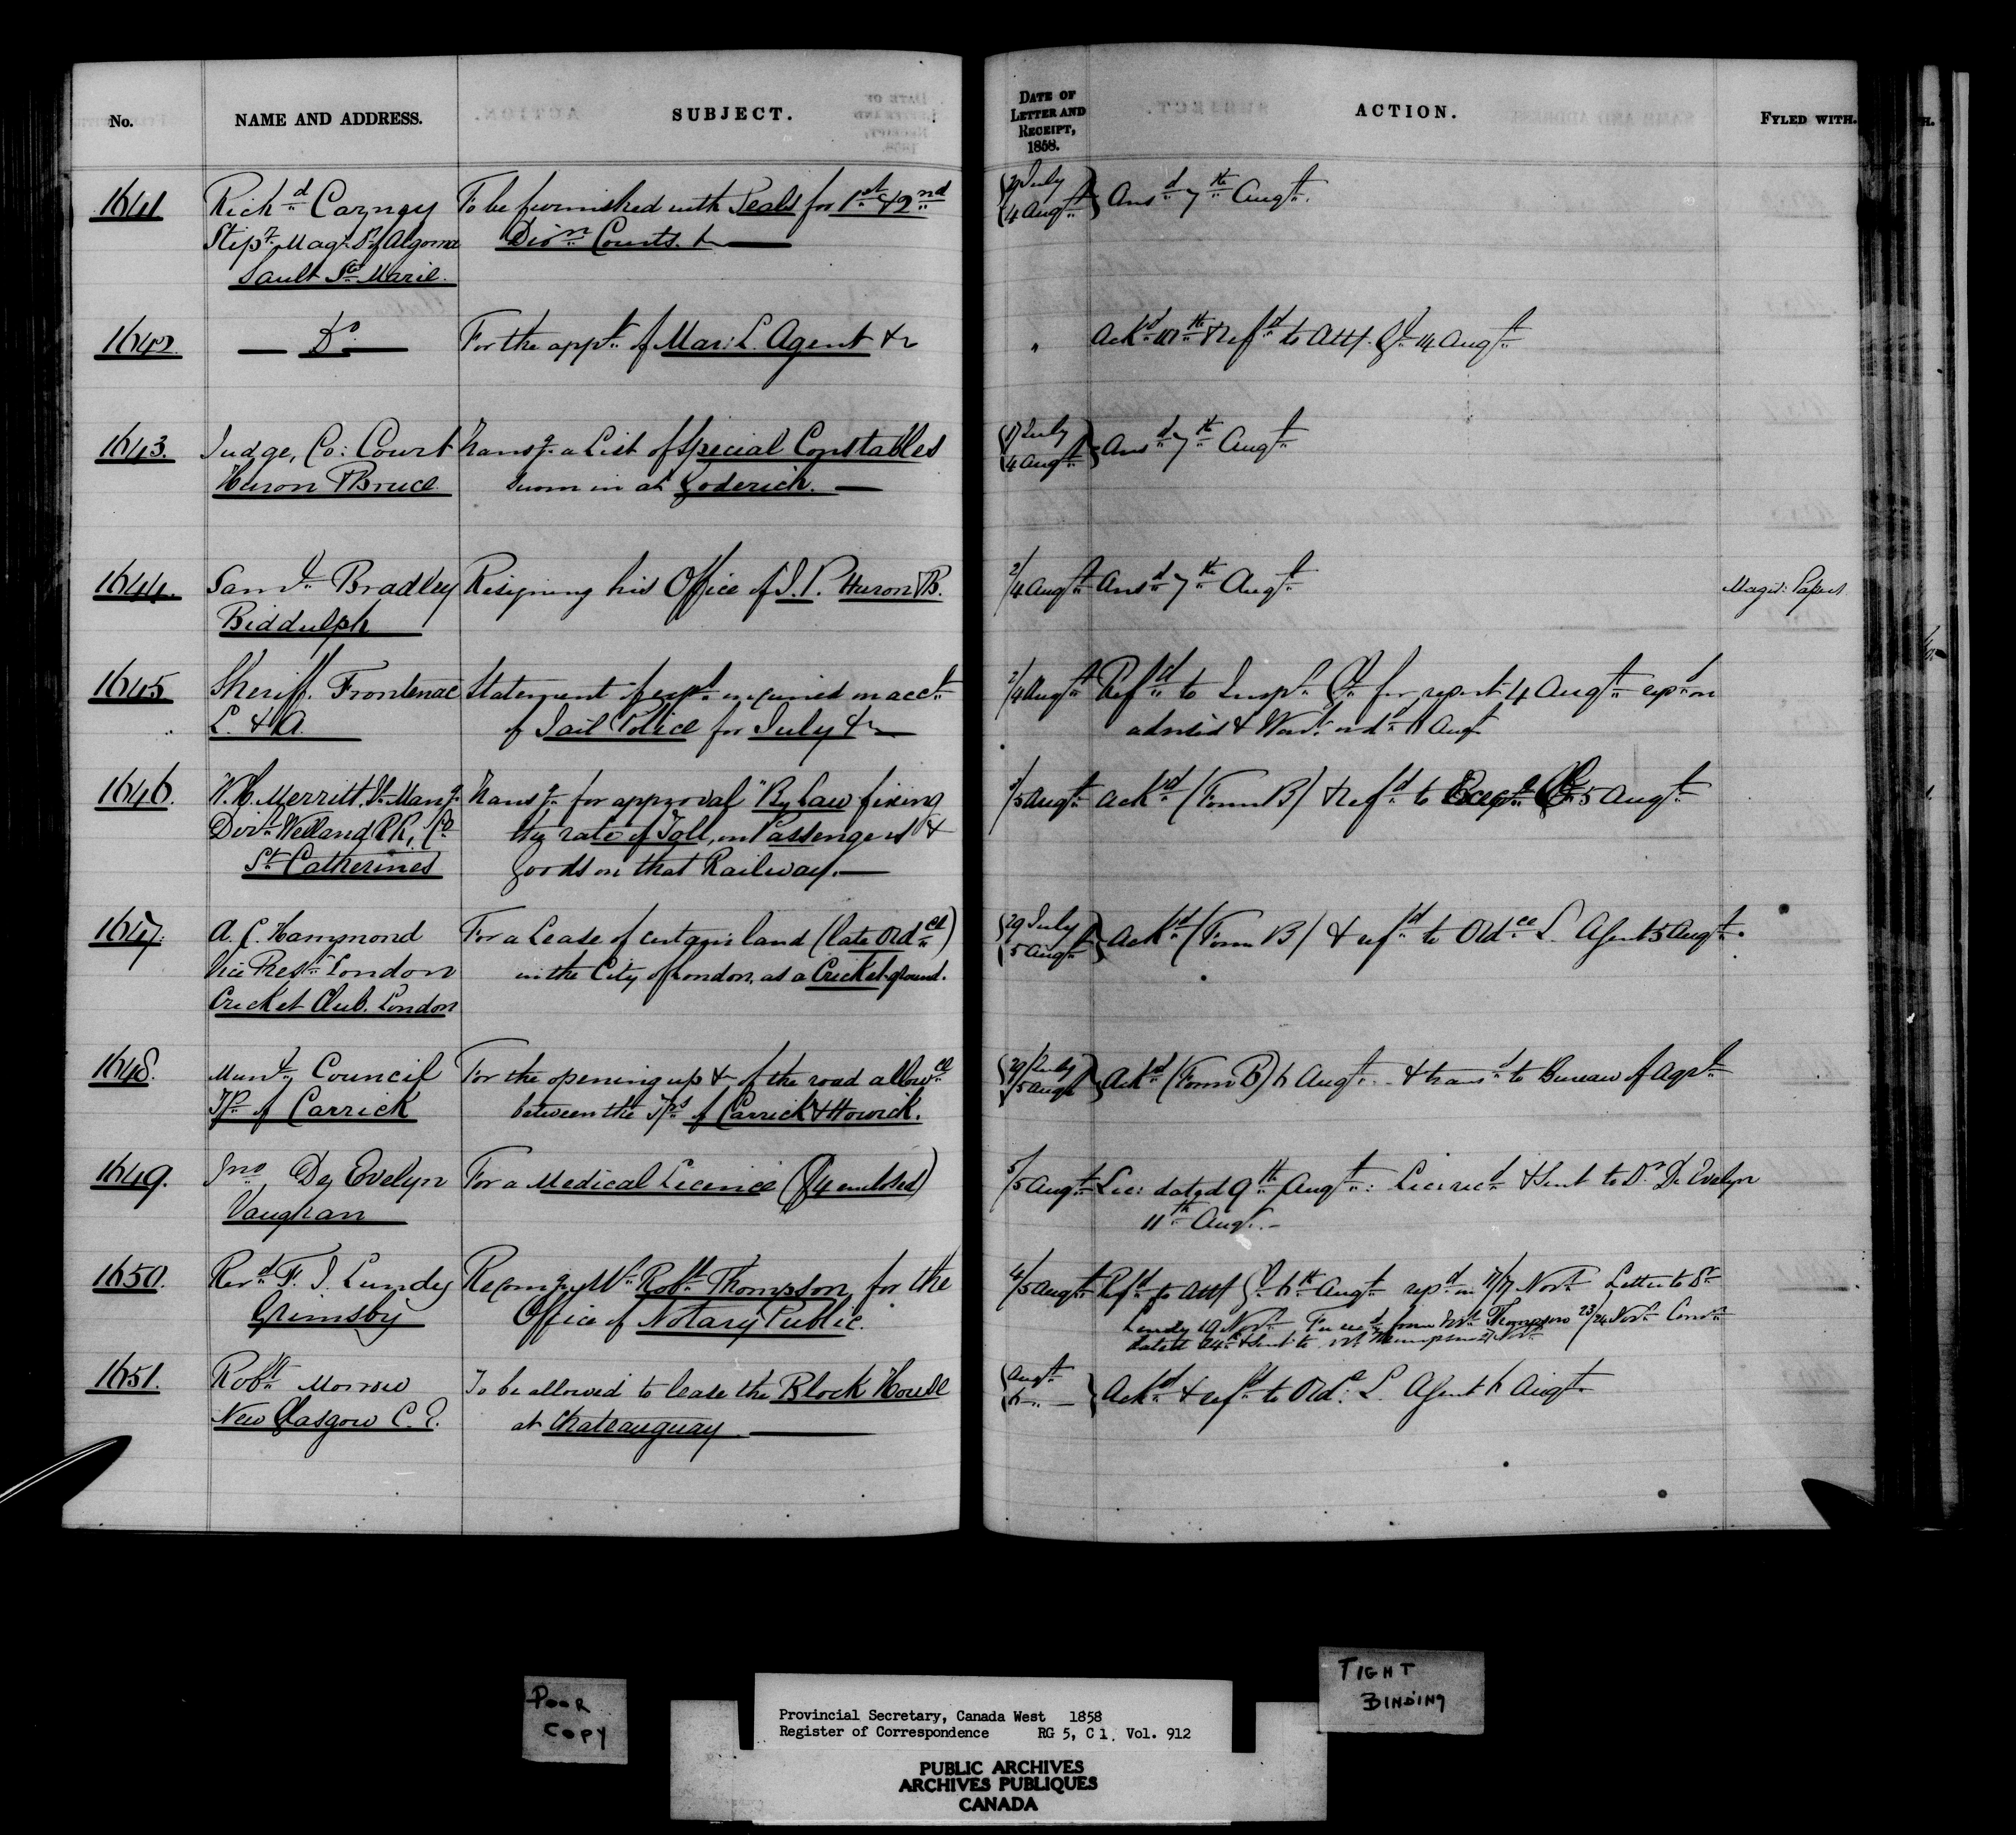 No. NAME AND ADDRESS. SUBJECT. DATE OF LETTER AND RECEIPT, 1858. ACTION. FYLED WITH.
1641 Richd Carney To be furnished with Seals for 1st & 2nd 29 July Ansd 7th Augt.
Stipy Magt Dt of Algoma Divn Courts. &c 4 Augt
Sault Ste Marie.
1642 — Do — For the appt of Mar: L. Agent &c " Ackd & refd to Atty. Gl 14 Augt
1643. Judge, Co: Court Transg a List of Special Constables July Ansd 7th Augt
Huron & Bruce sworn in at Goderich. — 4 Augt
1644. Saml Bradley Resigning his Office of J.P. Huron & B. 2/4 Augt Ansd 7th Augt Magis: Papers
Biddulph
1645 Sheriff. Frontenac Statement of expse incurred on acct 2/4 Augt Refd to Inspr Gl for report 4 Augt repd on
L. & A. of Jail Police for July &c — admised & Wart ordd 6 Augt
1646. W. H. Merritt, Transg for approval "By Law fixing 3/5 Augt Ackd (Form B) & refd to 5 Augt
Dirr Welland RR. Co the rate of Toll, on Passengers &
St Catherines Goods on that Railway. —
1647. A. C. Hammond For a Lease of certain land (late Ordce) 29 July Ackd (Form B) & refd to Ordce L. Agent 5 Augt.
Vice Prest London in the City of London, as a Cricket-ground. 5 Augt
Cricket Club. London
1648. Munl Council For the opening up &c of the road allowce 29/July Ackd (Form B) 6 Augt. & transd to Bureau of Agre
Tp of Carrick between the Tps of Carrick & Howick. /5 Augt
1649. Jno De Evelyn For a Medical Licence (£4 enclosed) 5/5 Augt Lic: dated 9th Augt: Lic: recd & sent to Dr De Evelyn
Vaughan 11th Augt. —
1650. Revd F. J. Lundy Recomg Mr Robt Thompson, for the 4/5 Augt Refd to Atty Gl 6th Augt repd on 17 Novr Letter to Dr
Grimsby Office of Notary Public. Lundy 19 Novr Fee recd from Mr Thompson 23/24 Novr Comn
dated 24th & sent to Mr Thompson Novr
1651. Robt Morrow To be allowed to lease the Block House Augt Ackd & refd to Ordce L. Agent 6 Augt
New Glasgow C. E. at Chateauguay — 6 —
POOR COPY
TIGHT BINDING
Provincial Secretary, Canada West 1858
Register of Correspondence RG 5, C 1. Vol. 912
PUBLIC ARCHIVES
ARCHIVES PUBLIQUES
CANADA